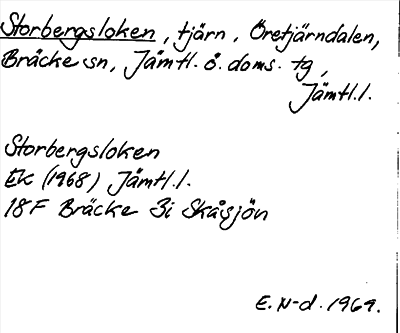 Storbergsloken, tjärn, Öretjärndalen,
Bräcke sn, Jämtl. ö. doms. tg,
Jämtl.l.
Storbergsloken
EK (1968) Jämtl.l.
18F Bräcke 3i Skåsjön
E. N-d. 1969.